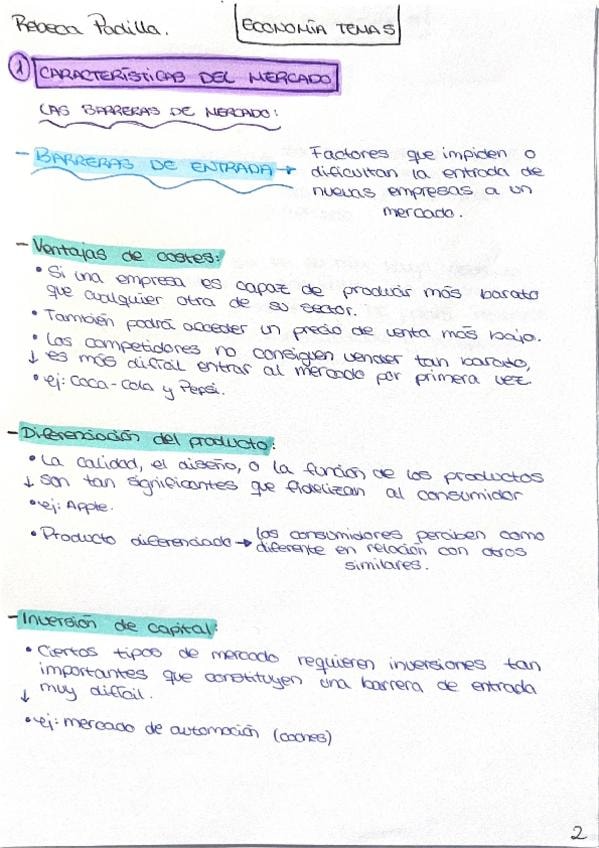 Rebeca Padilla.
ECONOMÍA TEMA 5
1 CARACTERÍSTICAS DEL MERCADO
LAS BARRERAS DE MERCADO:
- BARRERAS DE ENTRADA → Factores que impiden o
dificultan la entrada de
nuevas empresas a un
mercado.
- Ventajas de costes:
• Si una empresa es capaz de producir más barato
que cualquier otra de su sector.
• También podrá acceder un precio de venta más bajo.
• Los competidores no consiguen vender tan barato,
↓ es más difícil entrar al mercado por primera vez.
• ej: Coca-Cola y Pepsi.
- Diferenciación del producto:
• La calidad, el diseño, o la función de los productos
↓ son tan significantes que fidelizan al consumidor
• ej: Apple.
• Producto diferenciado → los consumidores perciben como
diferente en relación con otros
similares.
- Inversión de capital:
• Ciertos tipos de mercado requieren inversiones tan
importantes que constituyen una barrera de entrada
↓ muy difícil.
• ej: mercado de automoción (coches)
2